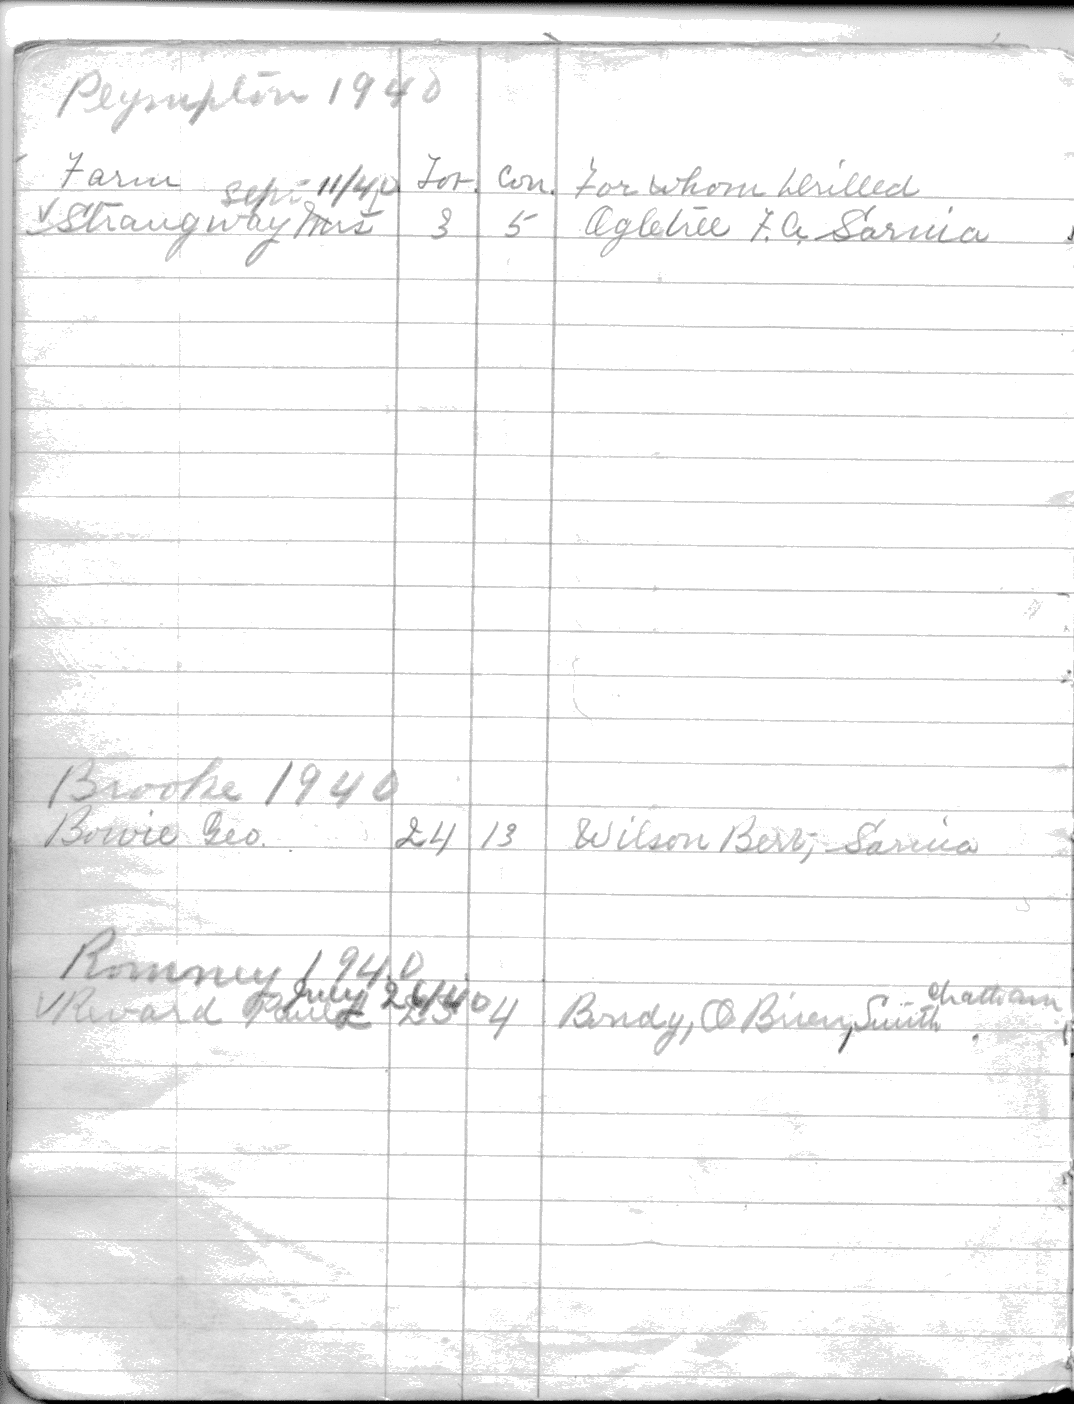 Plympton 1940
Farm Sept 11/40 Lot. Con. For Whom Drilled
✓ Strangway Mrs 3 5 Ogletree F. A. Sarnia
Brooke 1940
Bowie Geo. 24 13 Wilson Bert, Sarnia
Romney 1940
July 26/40 Chatham
✓ Revard 4 Bondy, O Brien, Smith